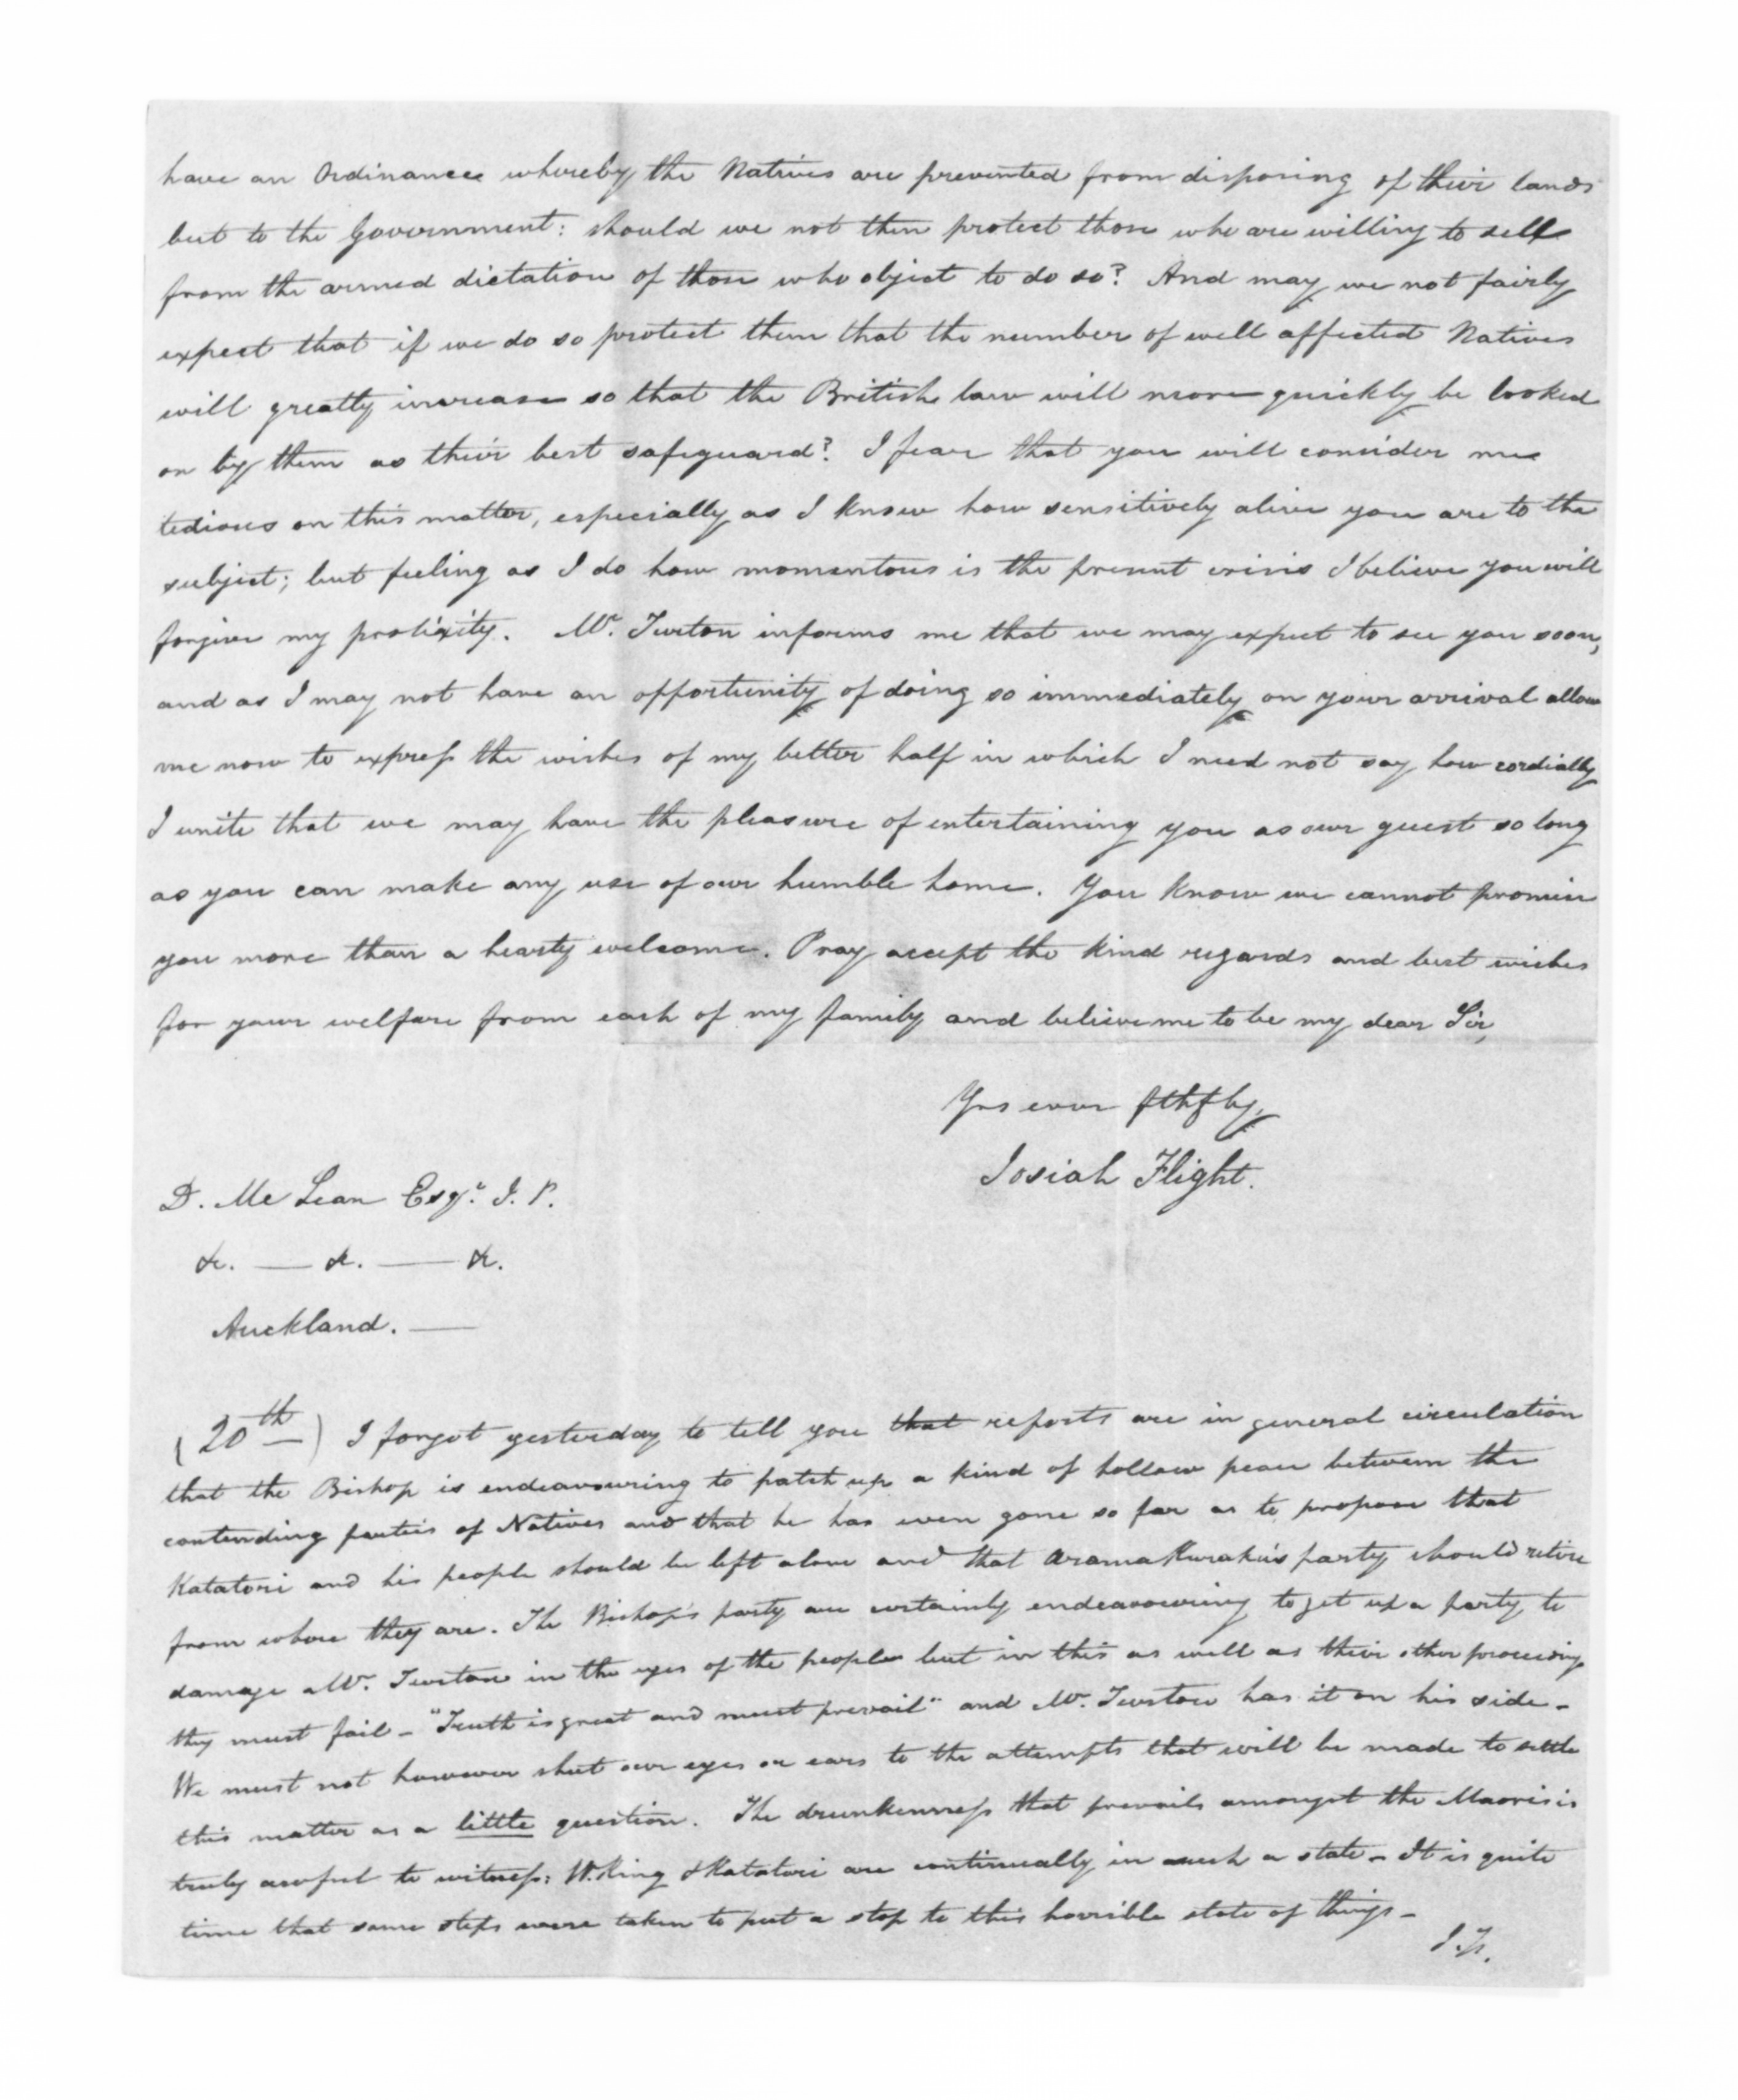 have an Ordinance whereby the Natives are prevented from disposing of their lands
but to the Government: should we not then protect those who are willing to sell
from the armed dictation of those who object to do so? And may we not fairly
expect that if we do so protect them that the number of well affected Natives
will greatly increase so that the British law will more quickly be looked
on by them as their best safeguard? I fear that you will consider me
tedious on this matter, especially as I know how sensitively alive you are to the
subject; but feeling as I do how momentous is the present crisis I believe you will
forgive my prolixity. Mr. Turton informs me that we may expect to see you soon,
and as I may not have an opportunity of doing so immediately on your arrival allow
me now to express the wishes of my better half in which I need not say how cordially
I unite that we may have the pleasure of entertaining you as our guest so long
as you can make any use of our humble home. You know we cannot promise
you more than a hearty welcome. Pray accept the kind regards and best wishes
for your welfare from each of my family and believe me to be my dear Sir,
Yrs ever fthfly,
Josiah Flight.
D. Mc Lean Esqr. J. P.
&. — &. — &.
Auckland. —
(20th) I forgot yesterday to tell you that reports are in general circulation
that the Bishop is endeavouring to patch up a kind of hollow peace between the
contending parties of Natives and that he has even gone so far as to propose that
Katatori and his people should be left alone and that Aramakuraku's party should retire
from where they are. The Bishop's party are certainly endeavouring to get up a party to
damage Mr. Turton in the eyes of the people but in this as well as their other proceedings
they must fail - "Truth is great and must prevail" and Mr. Turton has it on his side -
We must not however shut our eyes or ears to the attempts that will be made to settle
this matter as a little question. The drunkenness that prevails amongst the Maories is
truly awful to witness: W. King & Katatori are continually in such a state - It is quite
time that some steps were taken to put a stop to this horrible state of things -
J. F.